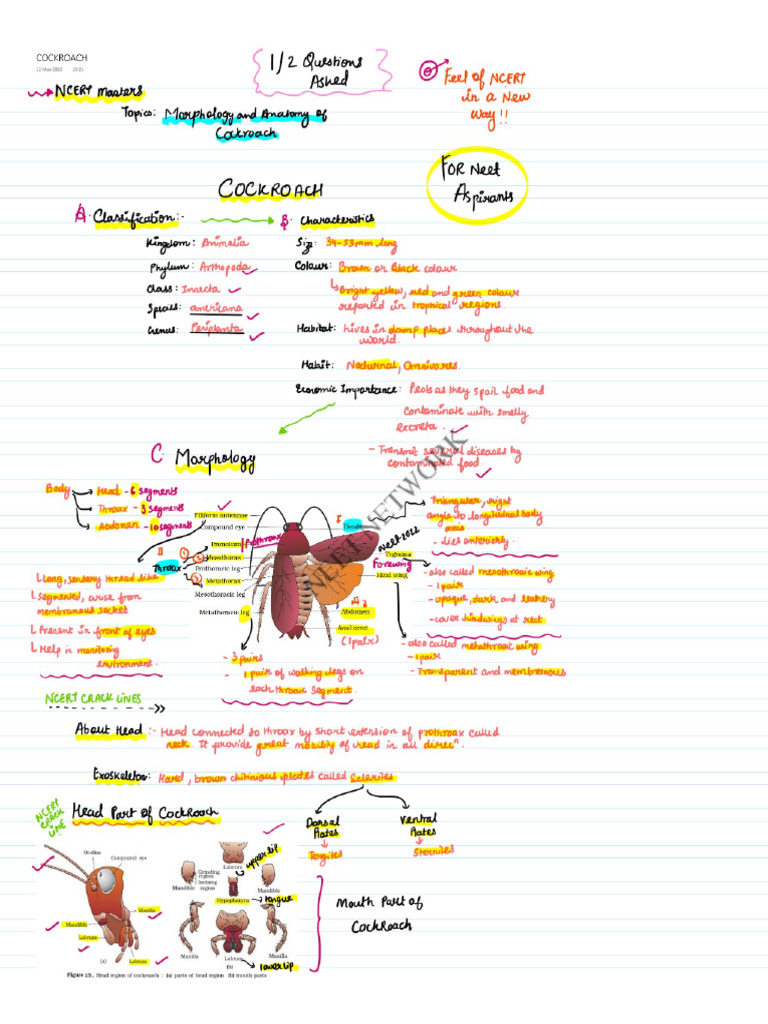 COCKROACH
12 May 2023 13:21
1/2 Questions
Asked
Feel of NCERT
in a New
Way!!
NCERT Masters
Topics: Morphology and Anatomy of
Cockroach
FOR Neet
Aspirants
COCKROACH
A. Classification:-
B. Characteristics
Kingdom: Animalia
Phylum: Arthopoda
Class: Insecta
Species: americana
Genus: Periplanta
Size: 34-53mm long
Colour: Brown or Black colour
Bright yellow, red and green colour
reported in tropical regions.
Habitat: lives in damp places throughout the
world.
Habit: Nocturnal, Omnivores.
Economic Importance: Pests as they spoil food and
contaminate with smelly
excreta.
- Transmit several diseases by
contaminated food
C. Morphology
Body
Head - 6 segments
Throax - 3 segments
Abdomen - 10 segments
Filiform antennae
Compound eye
Pronotum / Prothorax
Mesothorax
Prothoracic leg
Metathorax
Mesothoracic leg
Metathoracic leg
I
Head
II
Throax
1
2
3
Tegmina
Forewing
Hind wing
III
Abdomen
Anal cerci
(1 pair)
NEET NETWORK
Triangular, right
angle to longitudinal body
axis
- lies anteriorly.
- also called mesothroaic wing
- 1 pair
- opaque, dark and leathery
- cover hindwings at rest
- also called metathroaic wing
- 1 pair
- Transparent and membranous
Long, sensory thread like
Segmented, arise from
membranous socket
Present in front of eyes
Help in monitoring
environment.
- 3 pairs
- 1 pair of walking legs on
each throaic segment.
NCERT CRACK LINES
About Head:- Head connected to throax by short extension of prothorax called
neck. It provide great mobility of head in all direcn.
Exoskeleton: Hard, brown chitinious plates called Sclerites
Dorsal
Plates
Tergites
Ventral
Plates
Sternites
NCERT
CRACK
LINE
Head Part of Cockroach
Ocellus
Compound eye
Maxilla
Mandible
Labrum
Labium
(a)
Labrum
upper lip
Grinding
region
Incising
region
Mandible
Mandible
Hypopharynx
tongue
Maxilla
Labium
Maxilla
(b)
lower lip
Figure 15. Head region of cockroach : (a) parts of head region (b) mouth parts
Mouth Part of
Cockroach